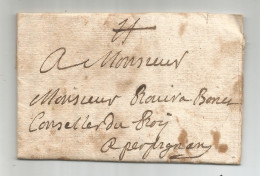 A Monsieur
Monsieur Rovira Bonet
Conseller du Roy
A perpignan